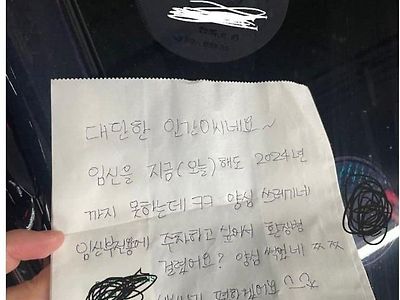 대단한 인간이시네요~
임신을 지금(오늘)해도 2024년
까지 못하는데 ㅋㅋ 양심 쓰레기네
임산부전용에 주차하고 싶어서 환장병
걸렸어요? 양심 썩었네 ㅉㅉ
편하겠어요